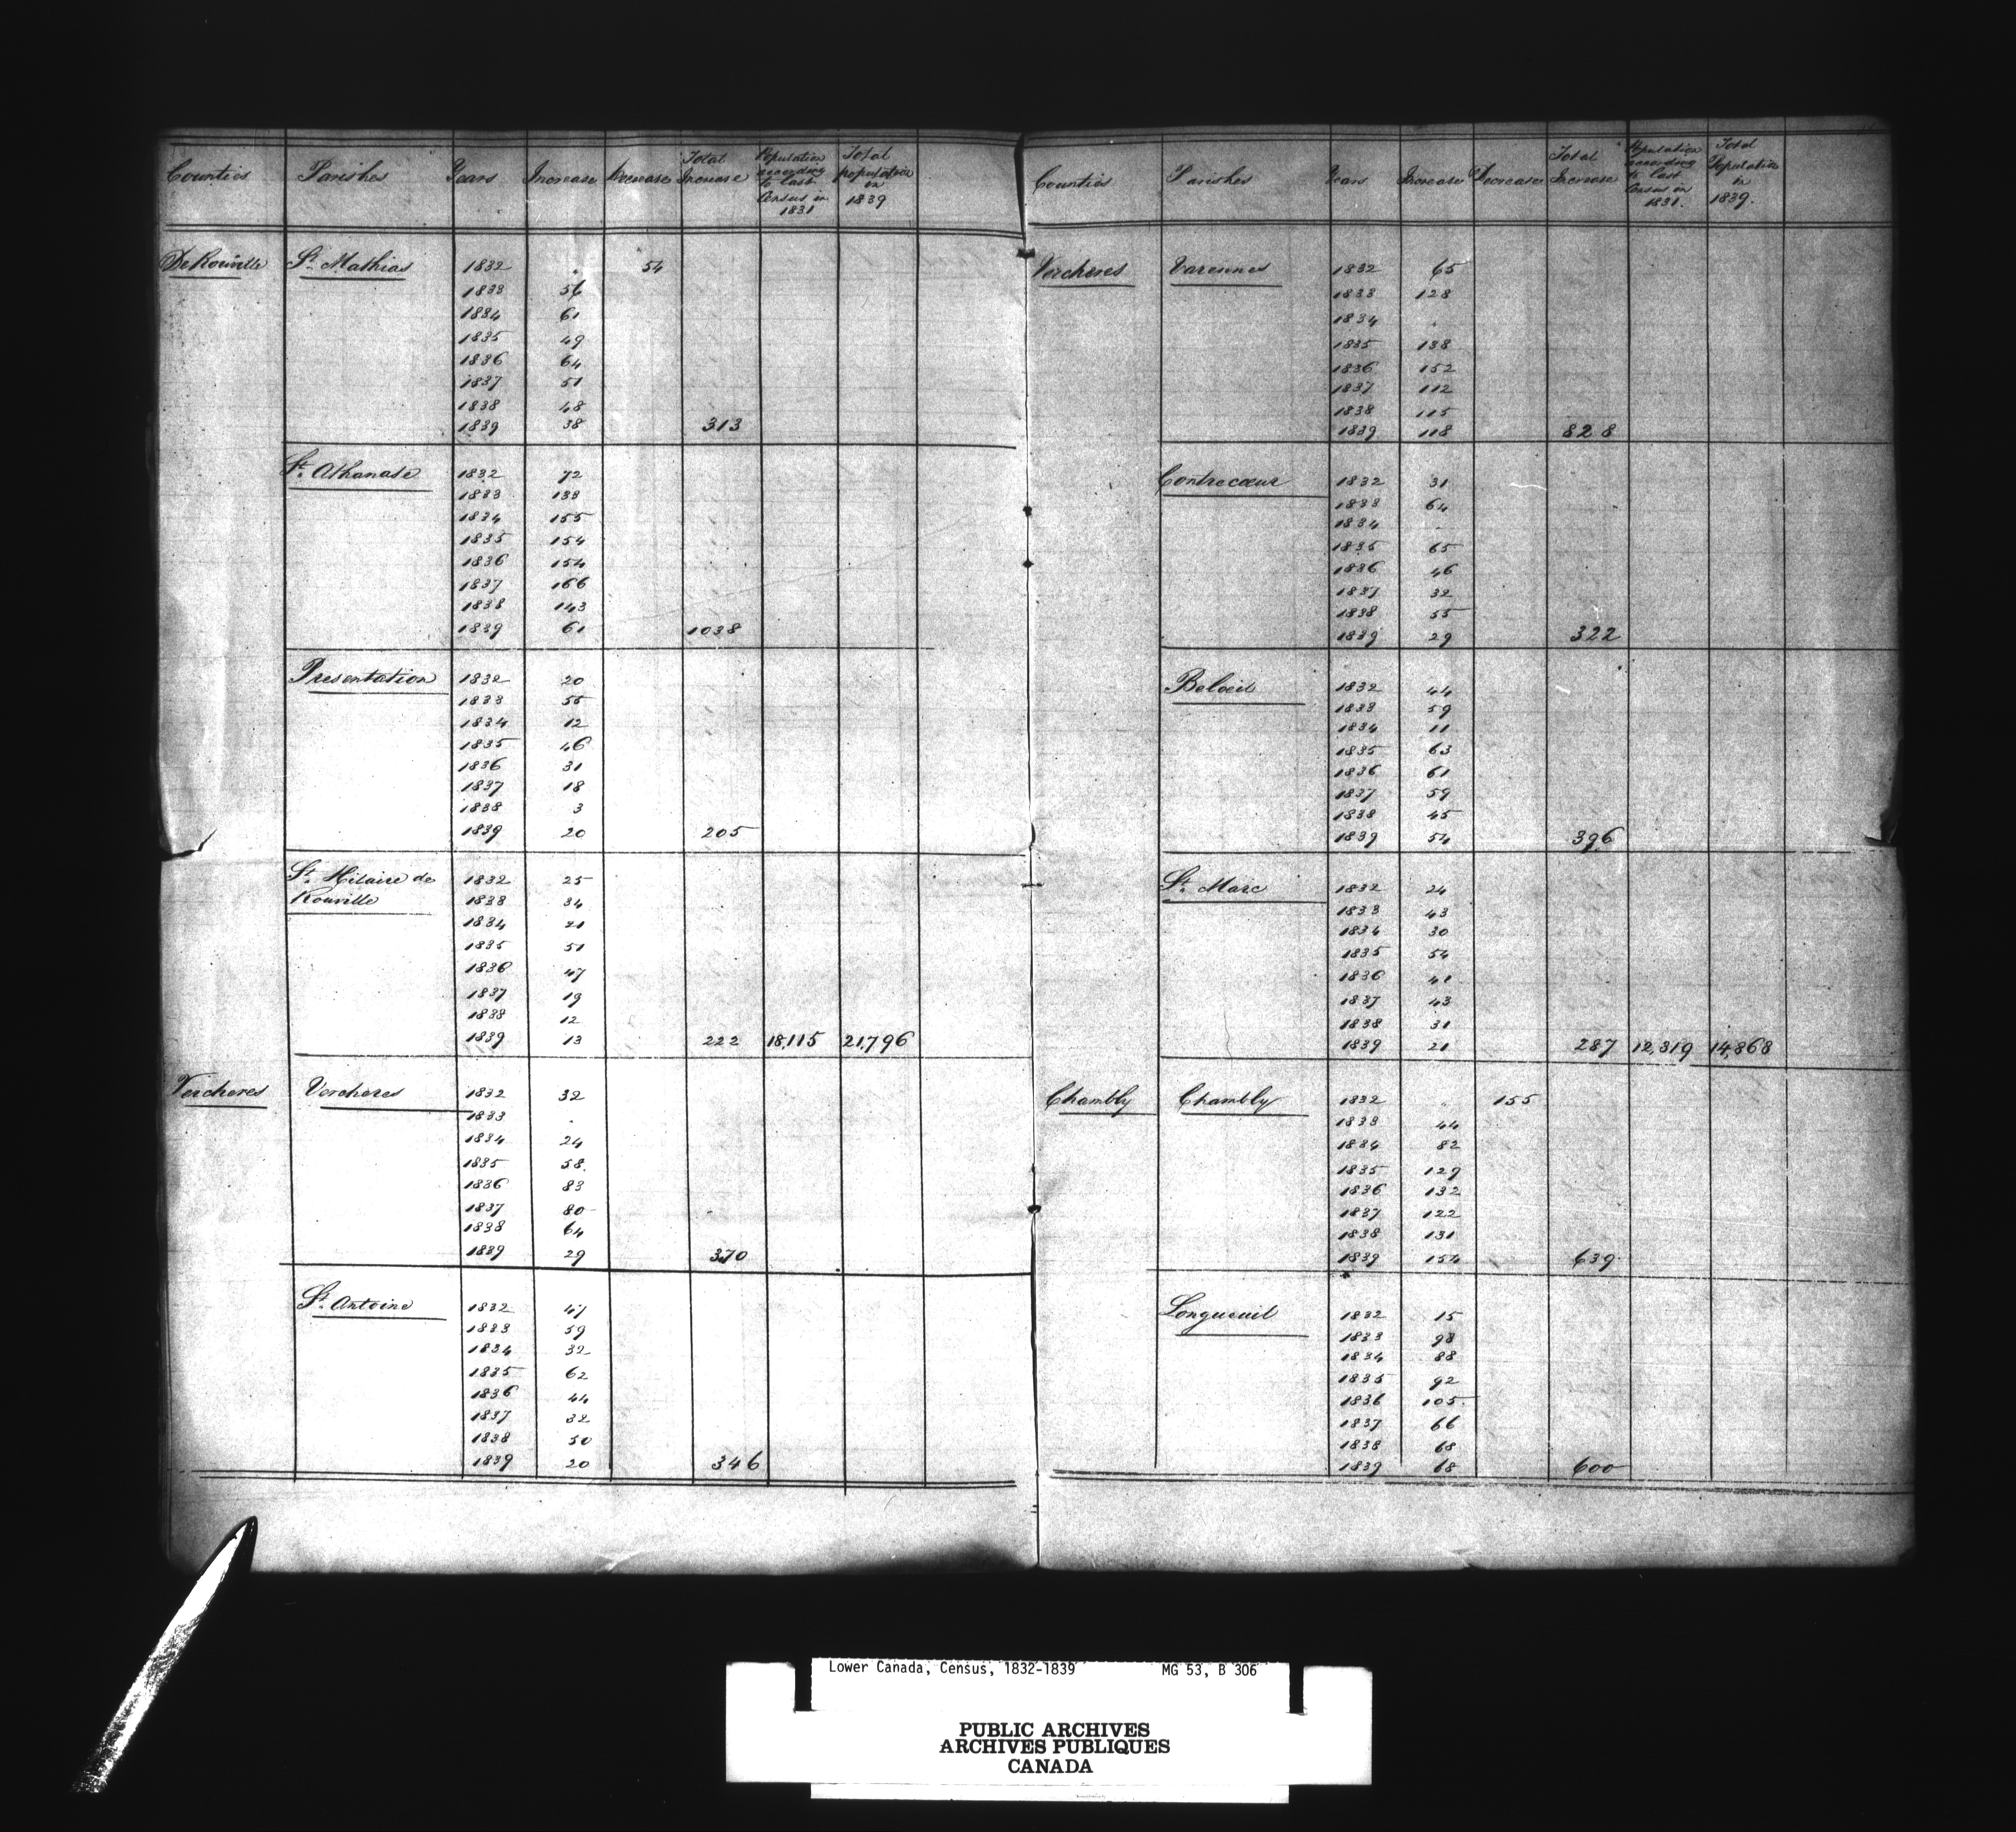 Counties Parishes Years Increase Decrease Total Increase Population according to last Census in 1831 Total population in 1839
De Rouville St. Mathias 1832 . 54
1833 56
1834 61
1835 49
1836 64
1837 51
1838 48
1839 38 313
St. Athanase 1832 72
1833 133
1834 155
1835 154
1836 154
1837 166
1838 143
1839 61 1038
Presentation 1832 20
1833 55
1834 12
1835 46
1836 31
1837 18
1838 3
1839 20 205
St. Hilaire de 1832 25
Rouville 1833 34
1834 21
1835 51
1836 47
1837 19
1838 12
1839 13 222 18,115 21,796
Vercheres Vercheres 1832 32
1833 .
1834 24
1835 58
1836 83
1837 80
1838 64
1839 29 370
St. Antoine 1832 47
1833 59
1834 32
1835 62
1836 44
1837 32
1838 50
1839 20 346
Counties Parishes Years Increase Decrease Total Increase Population according to last Census in 1831. Total Population in 1839.
Vercheres Varennes 1832 65
1833 128
1834 .
1835 138
1836 152
1837 112
1838 115
1839 118 828
Contrecœur 1832 31
1833 64
1834 .
1835 65
1836 46
1837 32
1838 55
1839 29 322
Belœil 1832 44
1833 59
1834 11
1835 63
1836 61
1837 59
1838 45
1839 54 396
St. Marc 1832 24
1833 43
1834 30
1835 54
1836 41
1837 43
1838 31
1839 21 287 12,319 14,868
Chambly Chambly 1832 . 155
1833 44
1834 82
1835 129
1836 132
1837 122
1838 131
1839 154 639
Longueuil 1832 15
1833 98
1834 88
1835 92
1836 105
1837 66
1838 68
1839 68 600
Lower Canada, Census, 1832-1839 MG 53, B 306
PUBLIC ARCHIVES
ARCHIVES PUBLIQUES
CANADA